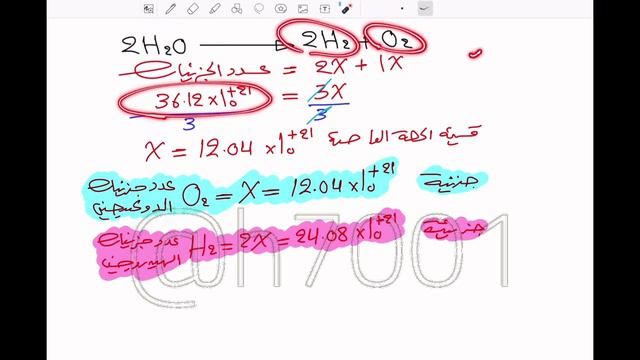 2H₂O ⟶ 2H₂ + O₂
عدد الجزيئات = 2X + 1X
36.12 × 10⁺²¹ / 3 = 3X / 3
X = 12.04 × 10⁺²¹ قيمة الحصة
عدد جزيئات الاوكسجين O₂ = X = 12.04 × 10⁺²¹ جزيئة
عدد جزيئات الهيدروجين H₂ = 2X = 24.08 × 10⁺²¹ جزيئة
@h7001